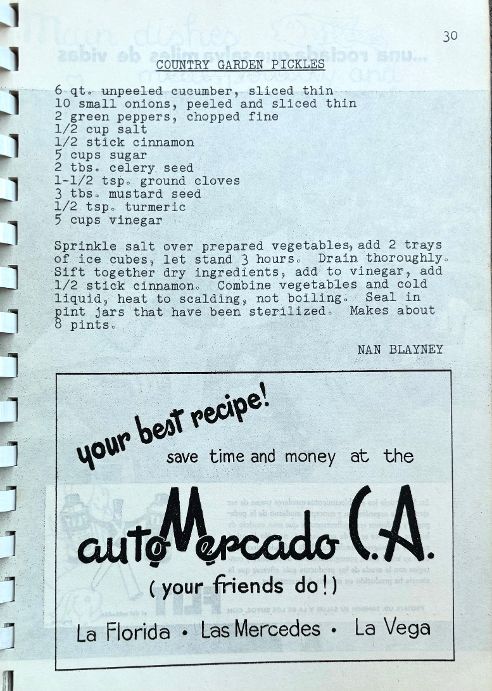 30
COUNTRY GARDEN PICKLES
6 qt. unpeeled cucumber, sliced thin
10 small onions, peeled and sliced thin
2 green peppers, chopped fine
1/2 cup salt
1/2 stick cinnamon
5 cups sugar
2 tbs. celery seed
1-1/2 tsp. ground cloves
3 tbs. mustard seed
1/2 tsp. turmeric
5 cups vinegar
Sprinkle salt over prepared vegetables, add 2 trays
of ice cubes, let stand 3 hours. Drain thoroughly.
Sift together dry ingredients, add to vinegar, add
1/2 stick cinnamon. Combine vegetables and cold
liquid, heat to scalding, not boiling. Seal in
pint jars that have been sterilized. Makes about
8 pints.
NAN BLAYNEY
your best recipe!
save time and money at the
autoMercado C.A.
(your friends do!)
La Florida • Las Mercedes • La Vega